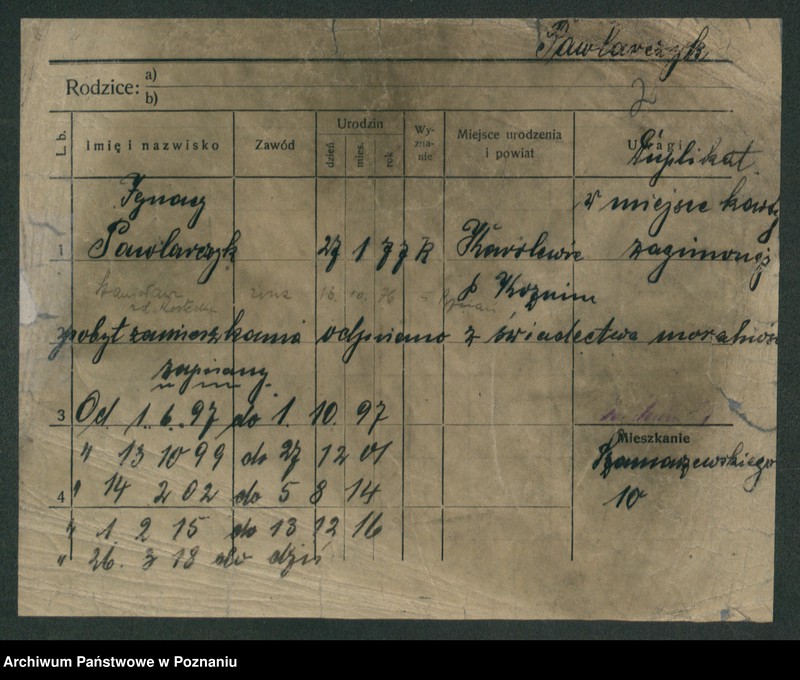 Pawlarczyk
Rodzice: a)
b)
2
L. b. Imię i nazwisko Zawód Urodzin dzień mies. rok Wyznanie Miejsce urodzenia i powiat Uwagi
Duplikat
w miejsce karty
Ignacy
1 Pawlarczyk 27 1 77 k Karolewie zaginionej
p Koźmin
Stanisława żona 16. 10. 76
pobyt zamieszkania odpisano z świadectwa moralności
zapisany
3 Od 1. 6. 97 do 1. 10. 97
Mieszkanie
" 13 10 99 do 27 12 01
Szamarzewskiego
4 " 14 2 02 do 5 8 14
10
" 1. 2 15 do 13 12 16
" 26. 3 18 do dziś
Archiwum Państwowe w Poznaniu